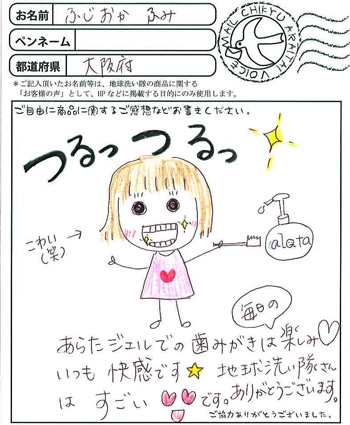 お名前 ふじおか ふみ
ペンネーム
都道府県 大阪府
MAIL CHIKYU ARAITAI VOICE
*ご記入頂いたお名前等は、地球洗い隊の商品に関する
「お客様の声」として、HPなどに掲載する目的にのみ使用します。
ご自由に商品に関するご感想などお書きください。
つるっつるっ
こわい
(笑)
alata
毎日の
あらたジェルでの歯みがきは楽しみ♡
いつも快感です☆ 地球洗い隊さん
はすごい!!です。ありがとうございます。
ご協力ありがとうございました。